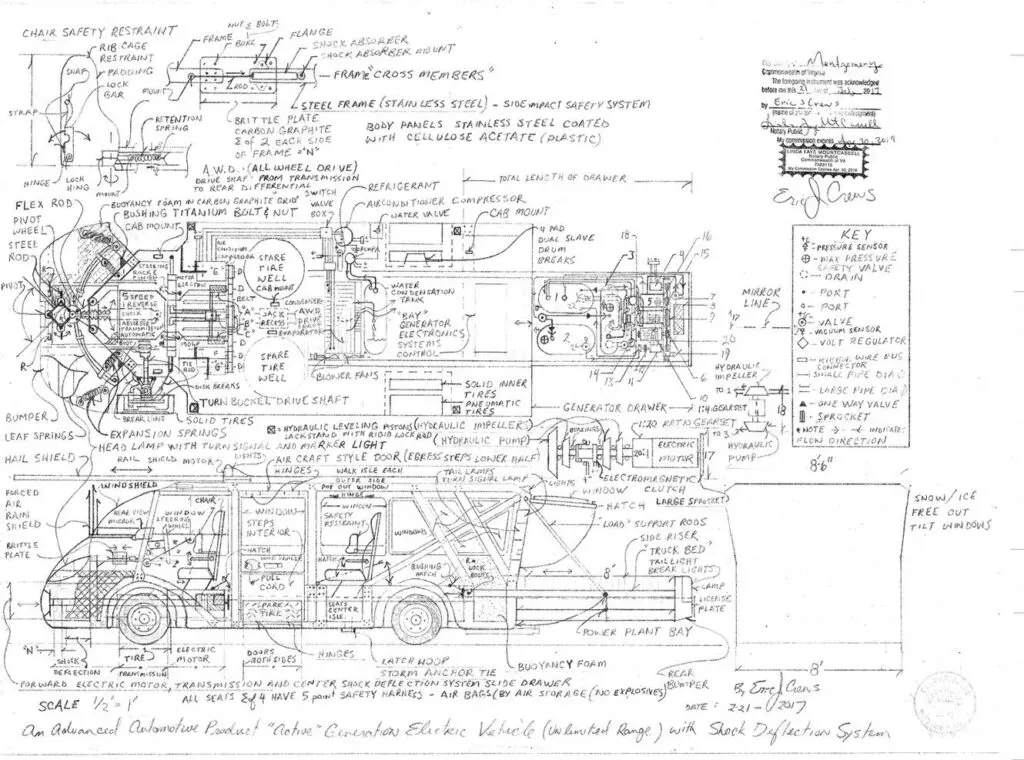 CHAIR SAFETY RESTRAINT
RIB CAGE
RESTRAINT
SNAP
PADDING
LOCK
BAR
STRAP
HINGE
LOCK
HING
MOUNT
RETENTION
SPRING
MOUNT
FRAME
NUT & BOLT
FLANGE
SHOCK ABSORBER
SHOCK ABSORBER MOUNT
FRAME "CROSS MEMBERS"
ROD
STEEL FRAME (STAINLESS STEEL) - SIDE IMPACT SAFETY SYSTEM
BRITTLE PLATE
CARBON GRAPHITE
Σ OF 2 EACH SIDE
OF FRAME "N"
BODY PANELS STAINLESS STEEL COATED
WITH CELLULOSE ACETATE (PLASTIC)
A.W.D. (ALL WHEEL DRIVE)
DRIVE SHAF - FROM TRANSMISSION
TO REAR DIFFERENTIAL
Montgomery
Commonwealth of Virginia
The foregoing instrument was acknowledged
before me this 31 day of July 2017
by Eric J Crews
Notary Public
My commission expires
LINDA FAYE MOUNTCASTELL
Notary Public
Commonwealth of VA
Eric J Crews
FLEX ROD
PIVOT
WHEEL
STEEL
ROD
PIVOT
BUOYANCY FOAM IN CARBON GRAPHITE GRID
BUSHING TITANIUM BOLT & NUT
CAB MOUNT
SWITCH
VALVE
BOX
REFRIGERANT
AIRCONDITIONER COMPRESSOR
WATER VALVE
CAB MOUNT
TOTAL LENGTH OF DRAWER
4 PAD
DUAL SLAVE
DRUM
BREAKS
STEERING
RACK &
PINION
5 SPEED
1 REVERSE
AUTOMATIC
MOTOR
ELECTRIC
BELT
SPARE
TIRE
WELL
CAB MOUNT
JACK
RECESS
CONDENSER
EVAPORATOR
AWD
DRIVE
SHAFT
SPARE
TIRE
WELL
PUMP
WATER
CONDENSATION
TANK
"BAY"
GENERATOR
ELECTRONICS
SYSTEMS
CONTROL
BLOWER FANS
TIE
ROD
DISK BREAKS
TURN BUCKET DRIVE SHAFT
BREAK LINE
SOLID TIRES
EXPANSION SPRINGS
SOLID INNER
TIRES
PNEUMATIC
TIRES
KEY
PRESSURE SENSOR
MAX PRESSURE
SAFETY VALVE
DRAIN
PORT
PORT
VALVE
VACUUM SENSOR
VOLT REGULATOR
RIBBON WIRE BUS
CONNECTOR
SMALL PIPE DIA
LARGE PIPE DIA
ONE WAY VALVE
SPROCKET
NOTE → ← INDICATE:
FLOW DIRECTION
MIRROR
LINE
HYDRAULIC
IMPELLER
HYDRAULIC
PUMP
GENERATOR DRAWER
1:4 GEARSET
1:20 RATN GEARSET
BEARINGS
20:1
ELECTRIC
MOTOR
ELECTROMAGNETIC
CLUTCH
LARGE SPROCKET
BUMPER
LEAF SPRINGS
HAIL SHIELD
HEAD LAMP WITH TURN SIGNAL AND MARKER LIGHT
HYDRAULIC LEVELING PISTONS (HYDRAULIC IMPELLERS)
JACKSTAND WITH RIGID LOCK ROD (HYDRAULIC PUMP)
HAIL SHIELD MOTOR
LIGHTS
AIR CRAFT STYLE DOOR (EGRESS STEPS LOWER HALF)
HINGES
WALK ISLE EACH
OUTER SIDE
POP OUT WINDOW
HINGE
TAIL LAMPS
TURN SIGNAL LAMP
LIGHTS
WINDOW
HATCH
8'6"
FORCED
AIR
RAIN
SHIELD
WINDSHIELD
REAR VIEW
MIRROR
WINDOW
STEERING
WHEEL
CHAIR
WINDOW
STEPS
INTERIOR
HATCH
PULL
CORD
WINDOW
SAFETY
RESTRAINT
HATCH
WINDOWS
BUSHING
HATCH
LOCK
LOAD SUPPORT RODS
SIDE RISER
"TRUCK BED"
TAILLIGHT
BREAK LIGHTS
8'
LAMP
LICENSE
PLATE
SNOW/ICE
FREE OUT
TILT WINDOWS
BRITTLE
PLATE
SPARE
TIRE
SEATS
CENTER
ISLE
POWER PLANT BAY
"N"
SHOCK
DEFLECTION
TIRE
TRANSMISSION
ELECTRIC
MOTOR
DOORS
BOTH SIDES
HINGES
LATCH HOOP
STORM ANCHOR TIE
BUOYANCY FOAM
REAR
BUMPER
8'
FORWARD ELECTRIC MOTOR, TRANSMISSION AND CENTER SHOCK DEFLECTION SYSTEM SLIDE DRAWER
ALL SEATS Σ of 4 HAVE 5 POINT SAFETY HARNESS - AIR BAGS (BY AIR STORAGE (NO EXPLOSIVES)
SCALE 1/2" = 1'
By Eric J Crews
DATE: 2-21-2017
An Advanced Automotive Product "Active" Generation Electric Vehicle (Unlimited Range) with Shock Deflection System